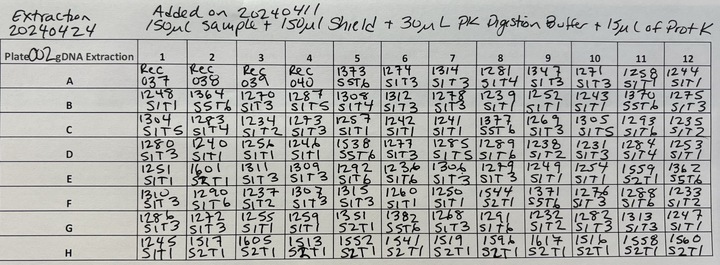 Extraction
20240424
Added on 20240411
150µL Sample + 150µl Shield + 30µL PK Digestion Buffer + 15µL of Prot K
Plate002gDNA Extraction 1 2 3 4 5 6 7 8 9 10 11 12
A Rec 037 Rec 038 Rec 039 Rec 040 1373 SST6 1274 S1T3 1314 S1T3 1281 S1T4 1347 S1T3 1271 S1T3 1258 S1T1 1244 S1T1
B 1248 S1T1 1364 SST6 1270 S1T3 1287 S1T5 1308 S1T4 1312 S1T3 1278 S1T3 1239 S1T1 1252 S1T1 1243 S1T1 1370 SST6 1275 S1T3
C 1304 S1T5 1283 S1T4 1234 S1T2 1273 S1T3 1257 S1T1 1242 S1T1 1241 S1T1 1377 SST6 1269 S1T3 1305 S1T5 1293 S1T6 1235 S1T2
D 1280 S1T3 1240 S1T1 1256 S1T1 1246 S1T1 1538 SST6 1277 S1T3 1285 S1T5 1289 S1T6 1238 S1T2 1231 S1T3 1284 S1T4 1253 S1T1
E 1251 S1T1 1601 S2T1 1311 S1T3 1309 S1T3 1292 S1T6 1236 S1T6 1306 S1T3 1279 S1T3 1249 S1T1 1254 S1T1 1559 S2T1 1362 SST6
F 1310 S1T3 1290 S1T6 1237 S1T2 1307 S1T3 1315 S1T3 1260 S1T1 1250 S1T1 1544 S2T1 1371 SST6 1276 S1T3 1288 S1T6 1233 S1T2
G 1286 S1T3 1272 S1T3 1255 S1T1 1259 S1T1 1351 S2T1 1382 SST6 1268 S1T3 1291 S1T6 1232 S1T2 1282 S1T3 1313 S1T3 1247 S1T1
H 1245 S1T1 1517 S2T1 1605 S2T1 1513 S2T1 1552 S2T1 1541 S2T1 1519 S2T1 1596 S2T1 1617 S2T1 1516 S2T1 1558 S2T1 1560 S2T1